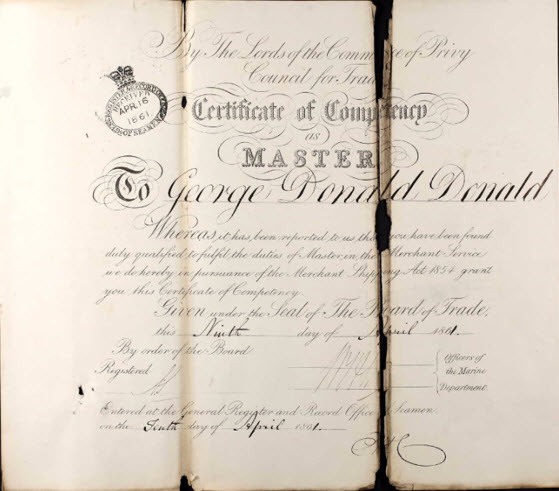 By The Lords of the Committee of Privy
Council for Trade
RECEIVED
APR. 16
1861
OF SEAMEN
Certificate of Competency
as
MASTER
To George Donald Donald
Whereas it has been reported to us that you have been found
duly qualified to fulfil the duties of Master in the Merchant Service
we do hereby in pursuance of the Merchant Shipping Act 1854 grant
you this Certificate of Competency
Given under the Seal of The Board of Trade,
this Ninth day of April 1861.
By order of the Board
Registered
Officers of
the Marine
Department.
Entered at the General Register and Record Office of Seamen
on the Tenth day of April 1861.